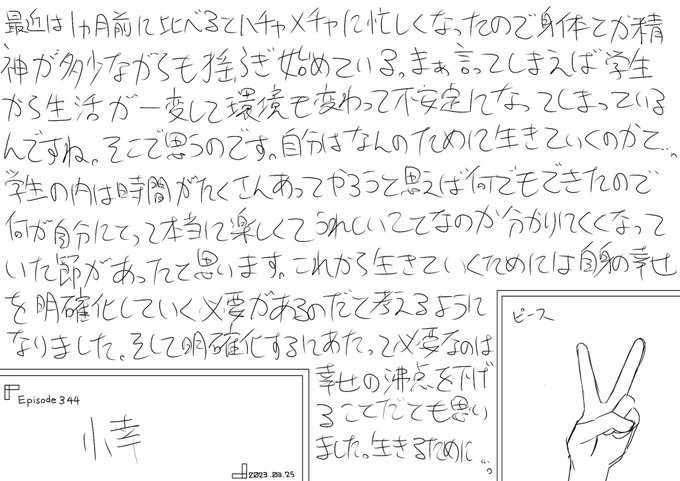 最近は1ヵ月前に比べるとハチャメチャに忙しくなったので身体とか精
神が多少ながらも揺らぎ始めている。まぁ言ってしまえば学生
から生活が一変して環境も変わって不安定になってしまっている
んですね。そこで思うのです。自分はなんのために生きていくのかと…。
学生の内は時間がたくさんあってやろうと思えば何でもできたので
何が自分にとって本当に楽しくてうれしいことなのか分かりにくくなって
いた節があったと思います。これから生きていくためには自身の幸せ
を明確化していく必要があるのだと考えるように
なりました。そして明確化するにあたって必要なのは
幸せの沸点を下げ
ることだとも思い
ました。生きるために…。
Episode 344
小幸
2023.03.25
ピース